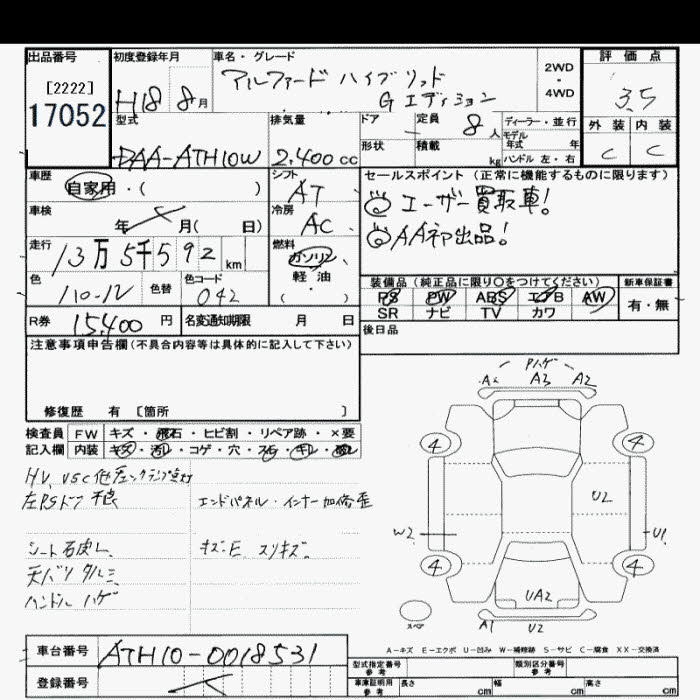 出品番号 初度登録年月 車名・グレード 評価点
[2222]
17052
H18 8月
アルファード ハイブリッド
Gエディション
2WD
・
4WD
3.5
外装 内装
C C
型式 排気量 ドア 定員 8人 ディーラー・並行
モデル
年式 年
DAA-ATH10W 2.400cc 形状 積載 kg ハンドル 左・右
車歴 シフト セールスポイント (正常に機能するものに限ります)
自家用・( ) AT
◎ユーザー買取車!
車検 冷房
年 月( 日) AC
◎AA初出品!
走行 燃料
13万5千592km ガソリン
軽油
( )
色 色替 色コード
042
装備品 (純正品に限り○をつけてください) 新車保証書
PS PW ABS エアB AW 有・無
SR ナビ TV カワ
R券 15.400円 名変通知期限 月 日
後日品
注意事項申告欄 (不具合内容等は具体的に記入して下さい)
修復歴 有 [箇所 ]
検査員 FW キズ・飛石・ヒビ割・リペア跡・×要
記入欄 内装 キズ・汚レ・コゲ・穴・スレ・キレ・
HV、VSC他チェックランプ点灯
左PSドア不良 エンドパネル・インナー加修歪
シート石皮レ キズ・E スリキズ
天バリタルミ
ハンドル ハゲ
Pハゲ
A2 A3 A2
4 4
U2
W2 U1
4 4
UA2
スペア A1 U2
A-キズ E-エクボ U-凹み W-補修跡 S-サビ C-腐食 XX-交換済
車台番号 ATH10-0018531
登録番号
型式指定番号 参考 類別区分番号 参考
車庫証明用 参考 長さ cm 幅 cm 高さ cm